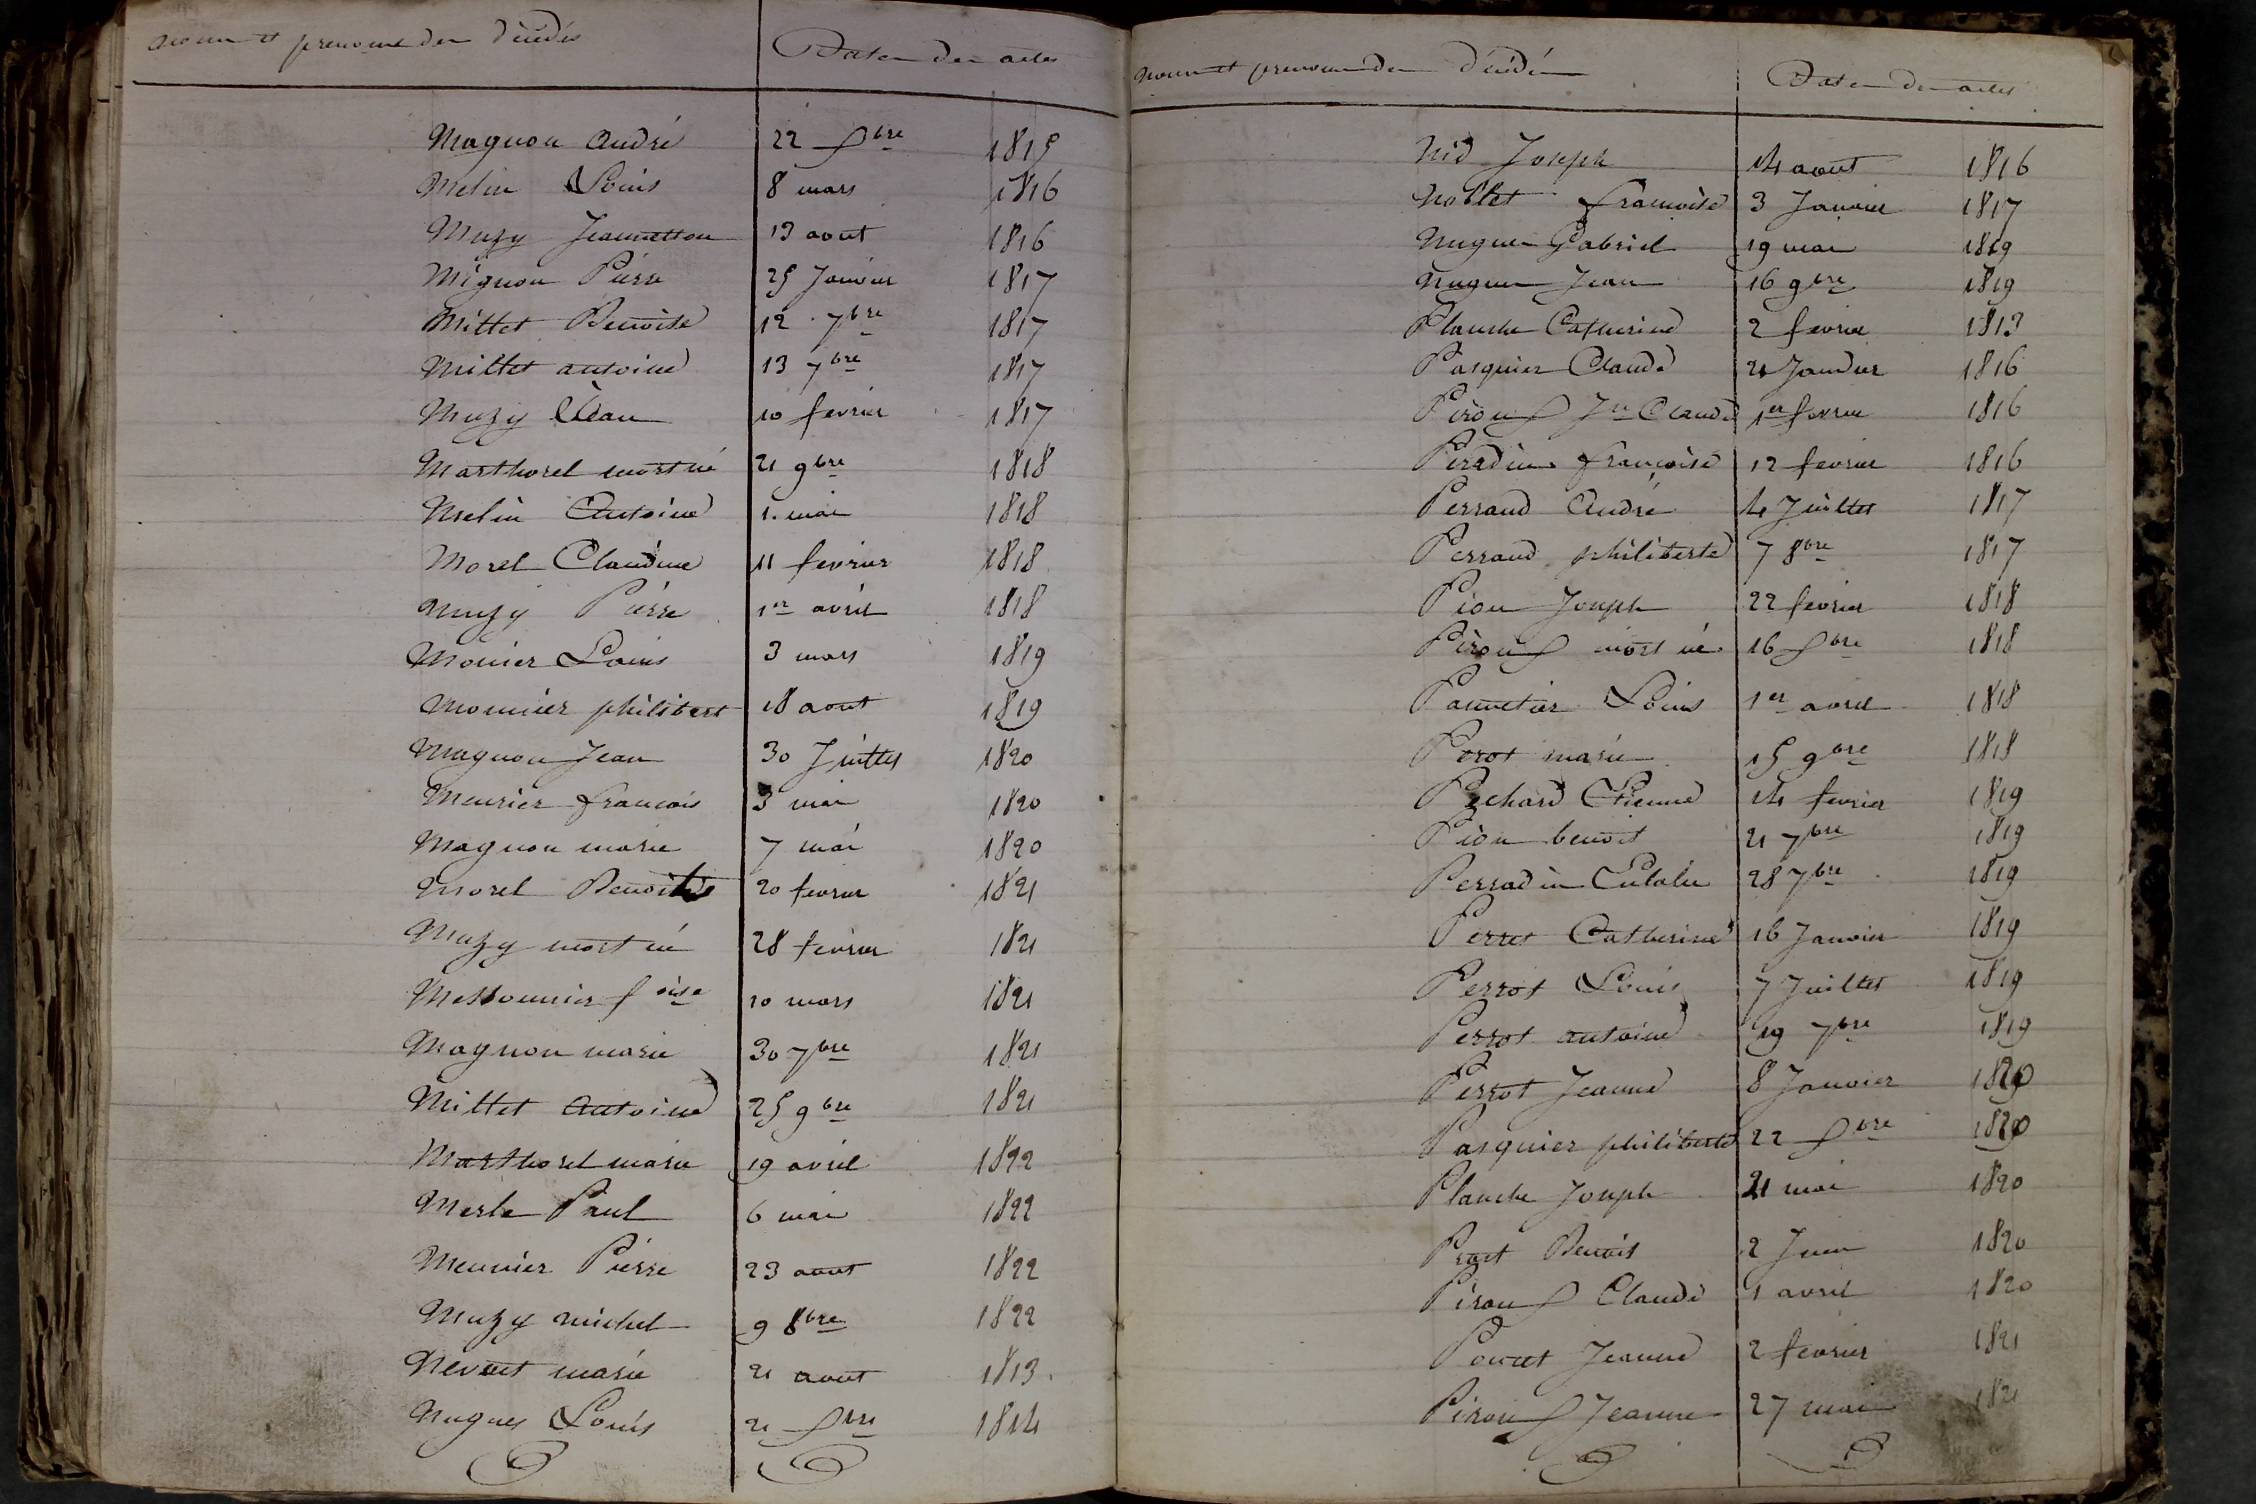 noms et prenoms des décédés Dates des actes
Magnon andré 22 Xbre 1815
Melin Louis 8 mars 1816
Muzy Jeannetton 13 aout 1816
Mignon Pierre 25 Janvier 1817
Millet Benoite 12 7bre 1817
Millet antoine 13 7bre 1817
Muzy Jean 10 fevrier 1817
Marthorel mort né 21 9bre 1818
Melin Antoine 1. mai 1818
Morel Claudine 11 fevrier 1818
Muzy Pierre 1er avril 1818
Monier Louis 3 mars 1819
Monnier philibert 18 aout 1819
Magnon Jean 30 Juillet 1820
Meunier francois 3 mai 1820
Magnon marie 7 mai 1820
Morel Benoite 20 fevrier 1821
Muzy mort né 28 fevrier 1821
Messonnier foise 10 mars 1821
Magnon marie 30 7bre 1821
Millet Antoine 25 9bre 1821
Marthorel marie 19 avril 1822
Merle Paul 6 mai 1822
Meunier Pierre 23 aout 1822
Muzy michel 9 8bre 1822
Nevout marie 21 aout 1813.
Nugues Louis 21 Xbre 1814
noms et prenoms des décédés Dates des actes
Nid Joseph 14 aout 1816
Noblet francoise 3 Janvier 1817
Nugues Gabriel 19 mai 1819
Nugues Jean 16 9bre 1819
Planche Catherine 2 fevrier 1813
Pasquier Claude 21 Janvier 1816
Piroux Jn Claude 1er fevrier 1816
Peradin francoise 12 fevrier 1816
Perraud André 4 Juillet 1817
Perraud philiberte 7 8bre 1817
Pion Joseph 22 fevrier 1818
Piroux mort né 16 Xbre 1818
Pannetier Louis 1er avril 1818
Perot marie 15 9bre 1818
Pechard Etienne 14 fevrier 1819
Pion benoit 21 7bre 1819
Perradin Eulalie 28 7bre 1819
Perret Catherine 16 Janvier 1819
Perrot Louis 7 Juillet 1819
Perrot antoine 19 7bre 1819
Perrot Jeanne 8 Janvier 1820
Pasquier philiberte 22 Xbre 1820
Planche Joseph 21 mai 1820
Prost Benoit 2 Juin 1820
Piroux Claude 1 avril 1820
Poncet Jeanne 2 fevrier 1821
Piroux Jeanne 27 mai 1821